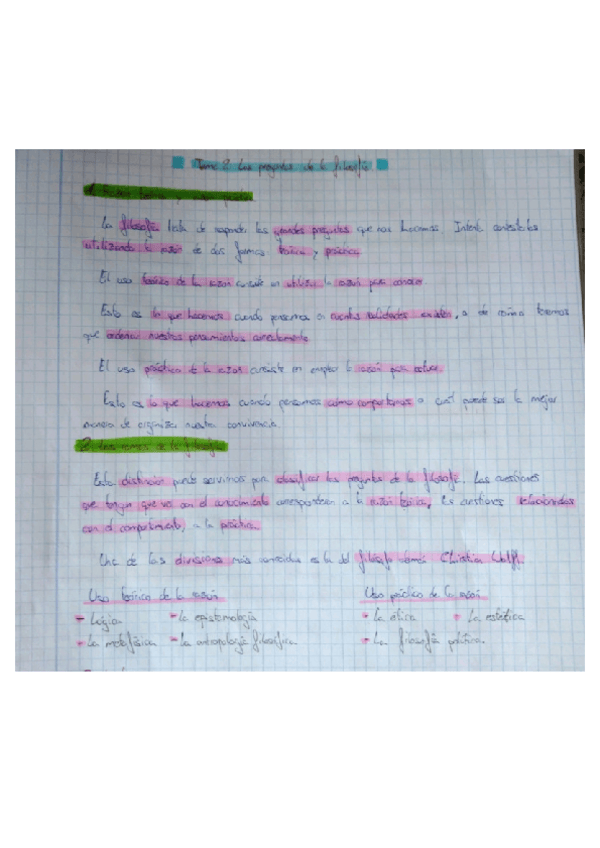 Tema 2. Las preguntas de la filosofía
1. Razón teórica y razón práctica
La filosofía trata de responder las grandes preguntas que nos hacemos. Intenta contestarlas
utilizando la razón de dos formas: teórica y práctica.
El uso teórico de la razón consiste en utilizar la razón para conocer.
Esto es lo que hacemos cuando pensamos en cuántas realidades existen, o de cómo tenemos
que ordenar nuestros pensamientos correctamente.
El uso práctico de la razón consiste en emplear la razón para actuar.
Esto es lo que hacemos cuando pensamos cómo comportarnos o cuál puede ser la mejor
manera de organizar nuestra convivencia.
2. Las ramas de la filosofía
Esta distinción puede servirnos para clasificar las preguntas de la filosofía. Las cuestiones
que tengan que ver con el conocimiento corresponderán a la razón teórica, las cuestiones relacionadas
con el comportamiento, a la práctica.
Una de las divisiones más conocidas es la del filósofo alemán Christian Wolff.
Uso teórico de la razón Uso práctico de la razón
- Lógica - La epistemología - La ética - La estética
- La metafísica - La antropología filosófica - La filosofía política.